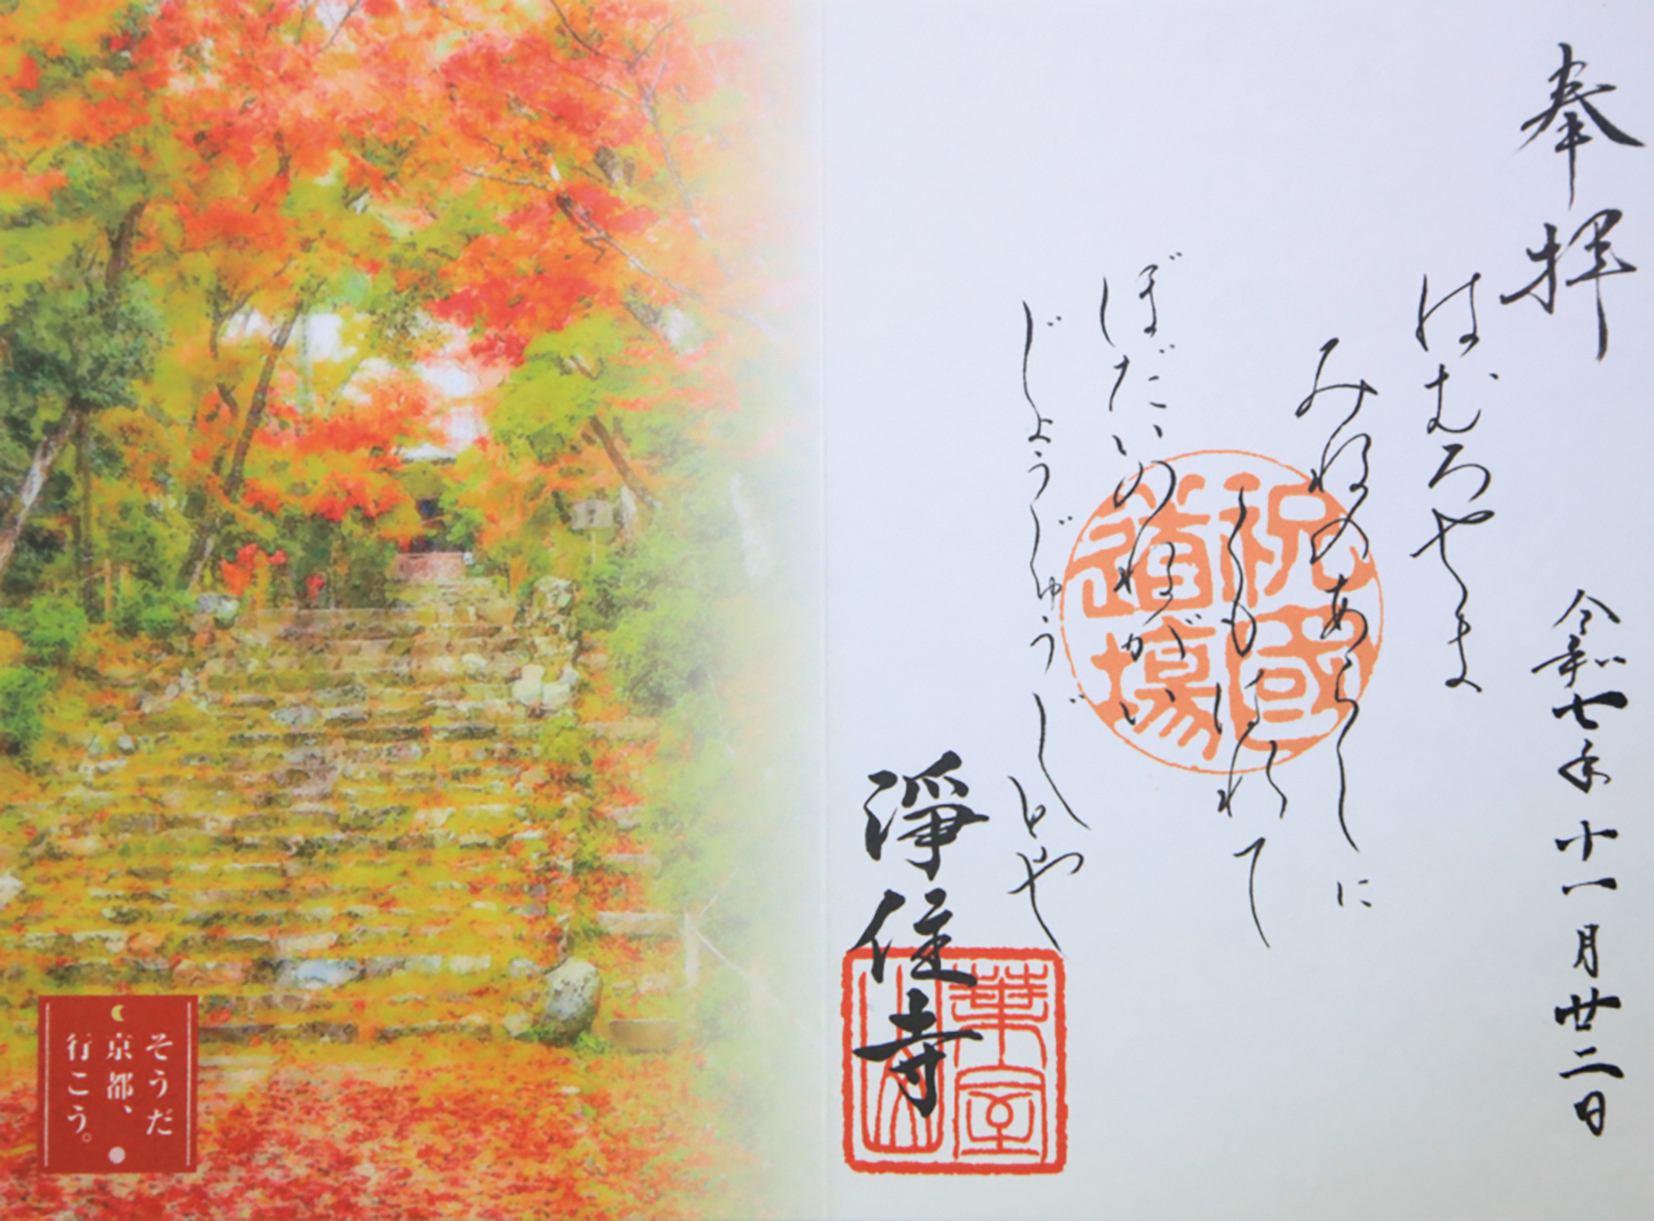 奉拝
令和七年十一月廿二日
はむろやま
みねのあらしに
しもはれて
ぼだいのねがい
じょうじゅうじとや
祝國
道場
淨住寺
葉室
山
そうだ
京都、
行こう。